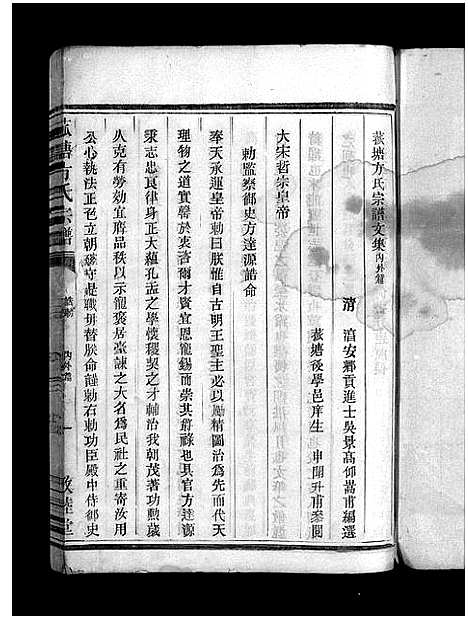 菰塘方氏宗譜文集內外篇
清 滄安鄉貢進士吳景高仰嵩甫編選
菰塘後學邑庠生 申開氏甫參閱
大宋哲宗皇帝
勅監察御史方達源誥命
奉天承運皇帝勅曰朕惟自古明王聖主必以勵精圖治為先而代天
理物之道實馨於衷咨爾才賢宜恩寵錫而崇其爵祿也具官方達源
秉志忠良律身正大蘊孔孟之學懷稷契之才輔治我朝茂著功勲歲
久克有勞効宜膺品秩以示寵褒居臺諫之大名為民社之重寄汝用
公心執法正色立朝謹守是職毋替朕命謹勅右勅功臣殿中侍御史
菰塘方氏宗譜
內外篇
一
敦睦堂